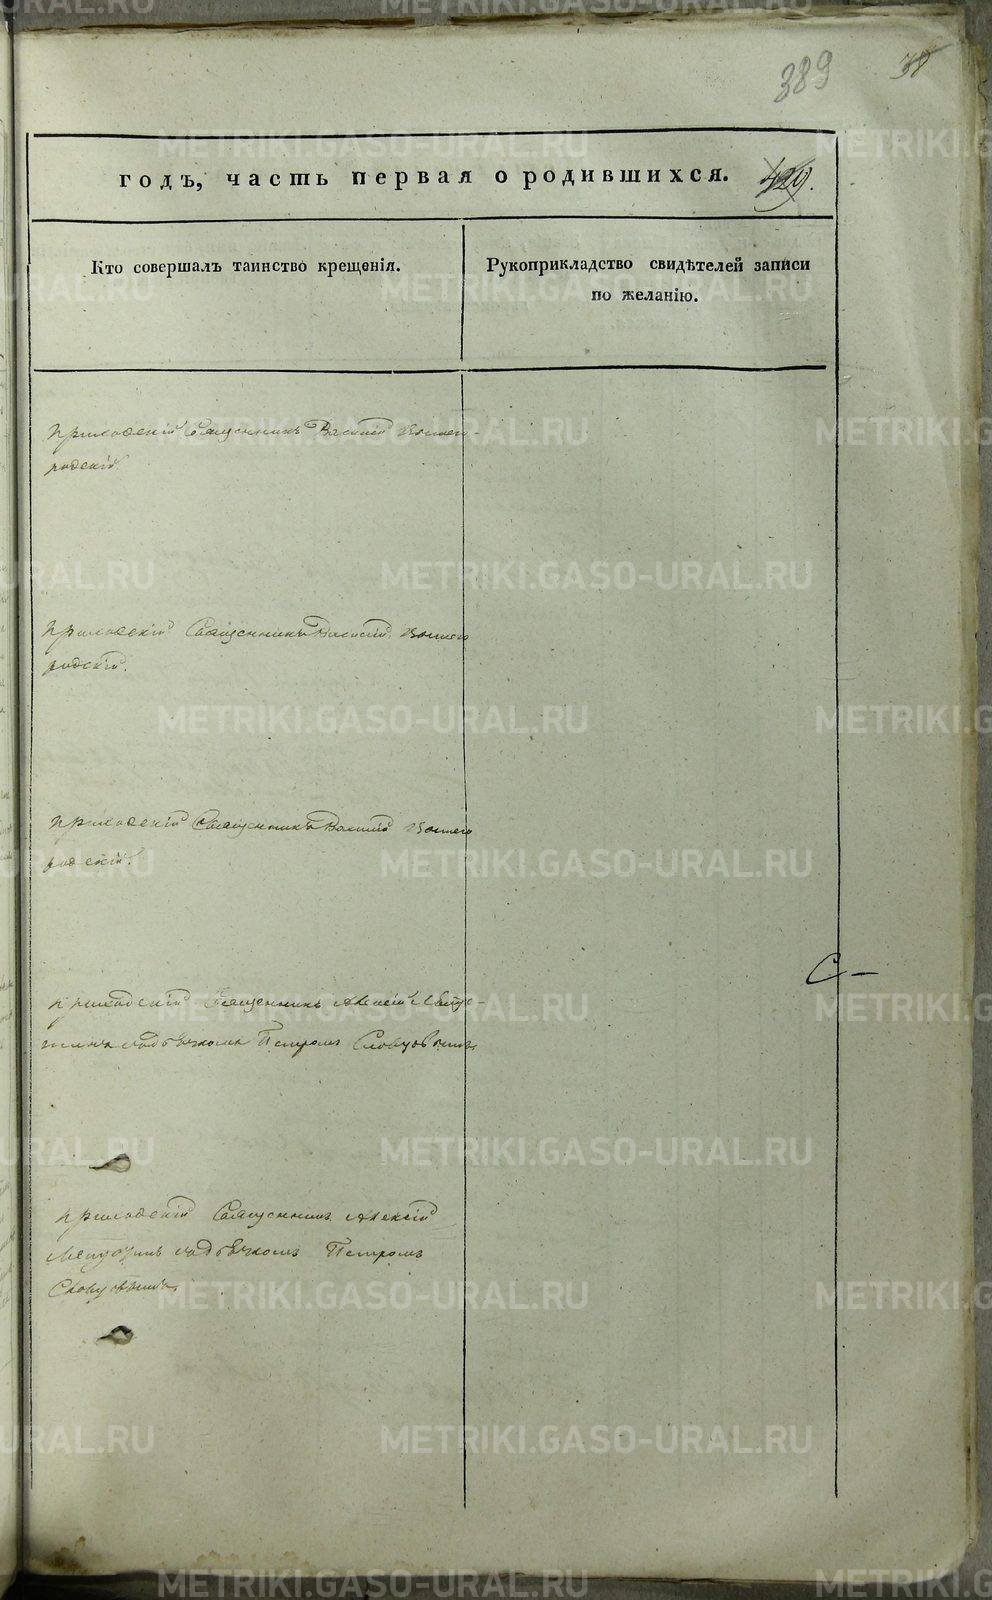 389
38
годъ, часть первая о родившихся. 429.
Кто совершалъ таинство крещенія.
Рукоприкладство свидѣтелей записи
по желанію.
приходскій Священникъ Василій
родскій
приходскій Священникъ Василій
родскій.
приходскій Священникъ Василій
родскій.
С—
приходскій Священникъ Алексій
Петромъ Словцовымъ
приходскій Священникъ Алексій
Петромъ
Словцовымъ
METRIKI.GASO-URAL.RU